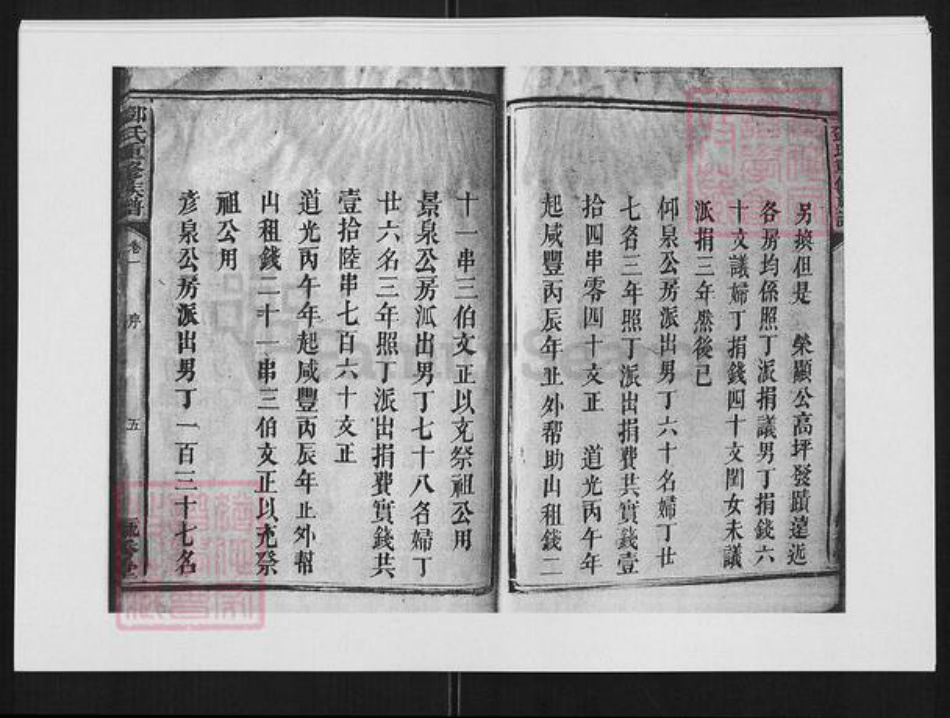 另換但是　榮顯公高坪發蹟遠近
各房均係照丁派捐議男丁捐錢六
十文議婦丁捐錢四十文閨女未議
派捐三年然後已
仰泉公房派出男丁六十名婦丁廿
七名三年照丁派出捐費共實錢壹
拾四串零四十文正　道光丙午年
起咸豐丙辰年止外帮助山租錢二
十一串三伯文正以充祭祖公用
景泉公房派出男丁七十八名婦丁
廿六名三年照丁派出捐費實錢共
壹拾陸串七百六十文正
道光丙午年起咸豐丙辰年止外幫
山租錢二十一串三伯文正以充祭
祖公用
彦泉公房派出男丁一百三十七名
氏重修族譜
卷一
序
五